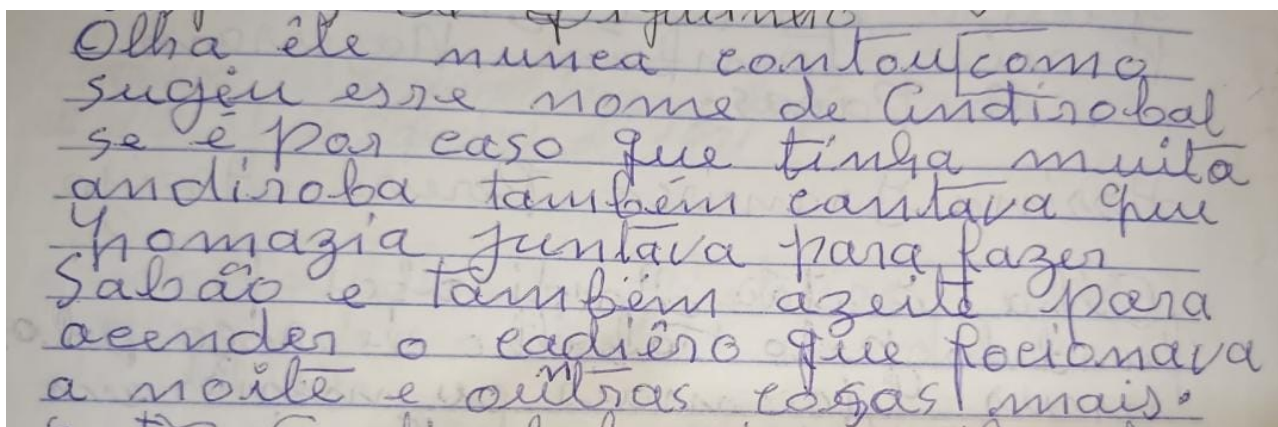 Olha êle nunca contou como
sugeiu esse nome de Andirobal
se é por caso que tinha muita
andiroba também contava que
homazia juntava para fazer
Sabão e também azeite para
acender o cadiêro que focionava
a noite e outras cosas mais.